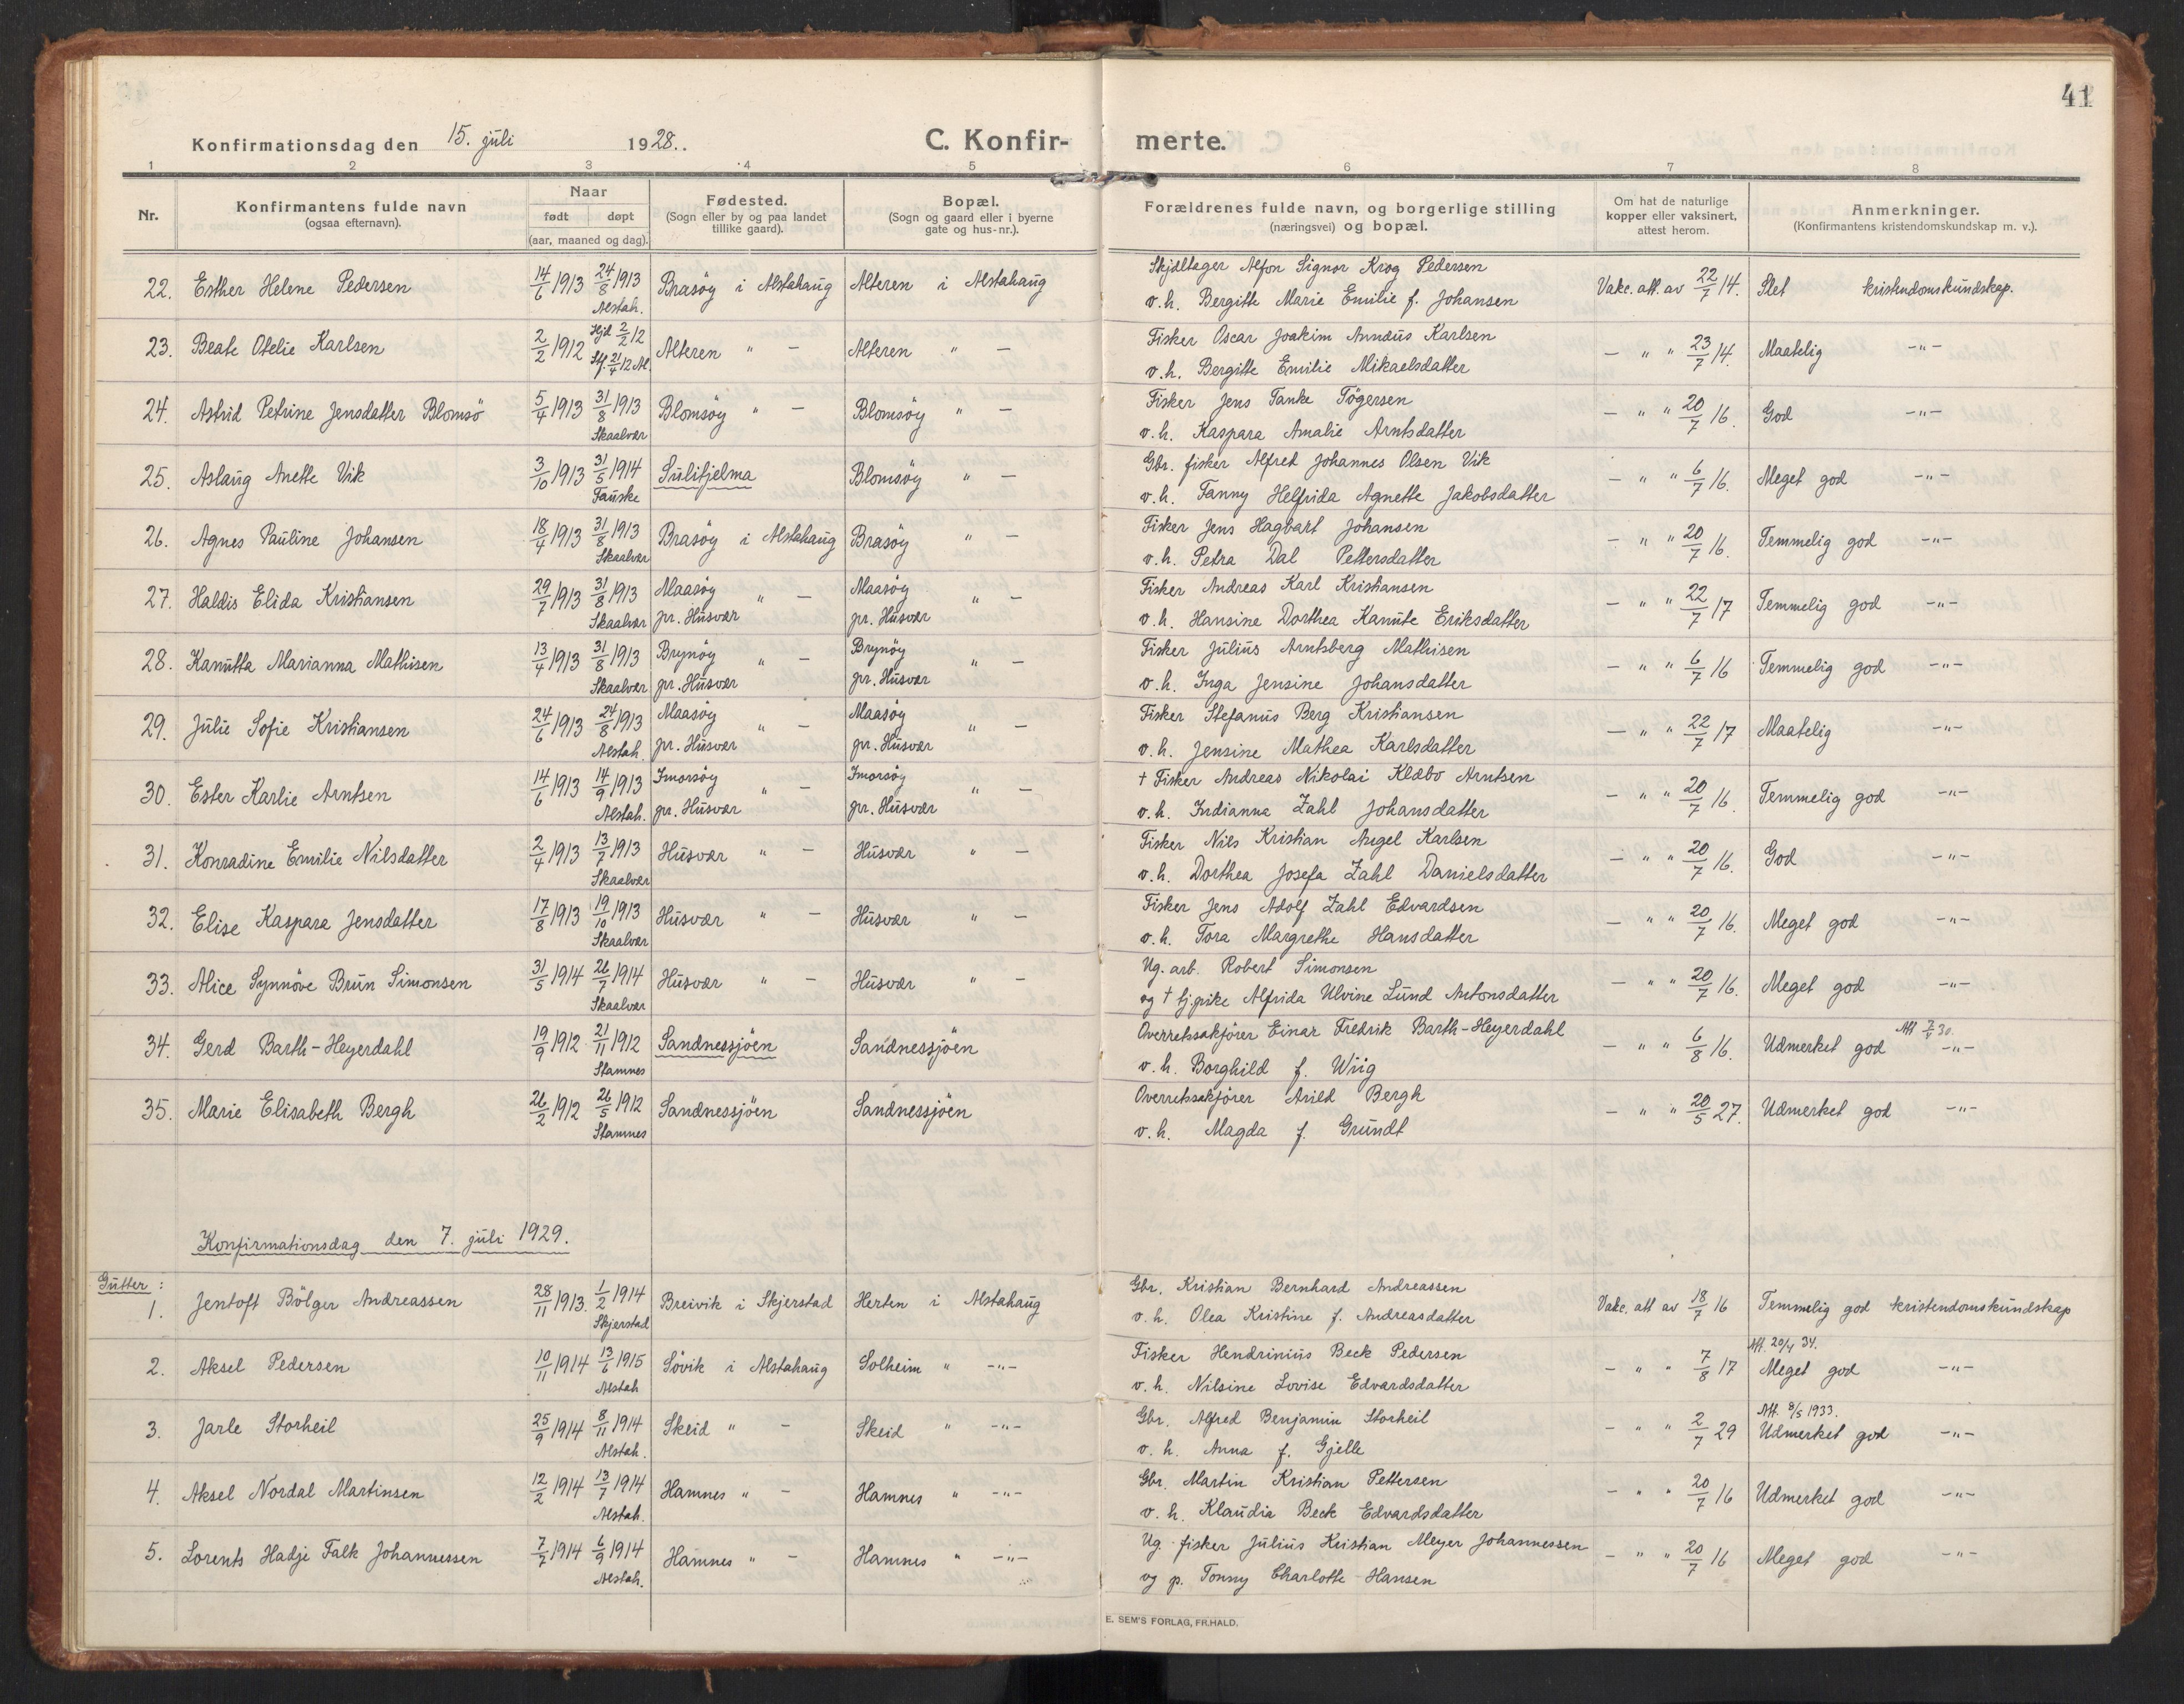 41
Konfirmationsdag den 15. juli 1928. C. Konfir- merte.
1 2 3 4 5 6 7 8
Nr. Konfirmantens fulde navn (ogsaa efternavn). Naar født døpt (aar, maaned og dag). Fødested. (Sogn eller by og paa landet tillike gaard). Bopæl. (Sogn og gaard eller i byerne gate og hus-nr.). Forældrenes fulde navn, og borgerlige stilling (næringsvei) og bopæl. Om hat de naturlige kopper eller vaksinert, attest herom. Anmerkninger. (Konfirmantens kristendomskundskap m. v.).
22. Esther Helene Pedersen 14/6 1913 24/8 1913 Alstah. Brasöy i Alstahaug Alteren i Alstahaug Skjæltager Alfon Signor Krog Pedersen
v. h. Bergitte Marie Emilie f. Johansen Vakc. att. av 22/7 14. Slet kristendomskundskap.
23. Beate Otelie Karlsen 2/2 1912 Hjd 2/2 12 Stf. 21/4 12 Al. Alteren " - Alteren " - Fisker Oscar Joakim Anndus Karlsen
v. h. Bergitte Emilie Mikaelsdatter - " " 23/7 14. Maatelig -"-
24. Astrid Petrine Jensdatter Blomsö 5/4 1913 31/8 1913 Skaalvær Blomsöy " - Blomsöy " - Fisker Jens Tanke Tögersen
v. h. Kaspara Amalie Arntsdatter - " " 20/7 16. God -"-
25. Aslaug Anette Vik 3/10 1913 31/5 1914 Fauske Sulitjelma Blomsöy " - Gbr. fisker Alfred Johannes Olsen Vik
v. h. Fanny Helfrida Agnette Jakobsdatter - " " 6/7 16. Meget god -"-
26. Agnes Pauline Johansen 18/4 1913 31/8 1913 Skaalvær Brasöy i Alstahaug Brasöy " - Fisker Jens Hagbart Johansen
v. h. Petra Dal Pettersdatter - " " 20/7 16. Temmelig god -"-
27. Haldis Elida Kristiansen 29/7 1913 31/8 1913 Skaalvær Maasöy gr. Husvær " - Maasöy gr. Husvær " - Fisker Andreas Karl Kristiansen
v. h. Hansine Dorthea Kanute Eriksdatter - " " 22/7 17 Temmelig god -"-
28. Kanutta Marianna Mathisen 13/4 1913 31/8 1913 Skaalvær Brynöy gr. Husvær " - Brynöy gr. Husvær " - Fisker Julius Arntsberg Mathisen
v. h. Inga Jensine Johansdatter - " " 6/7 16 Temmelig god -"-
29. Julie Sofie Kristiansen 24/6 1913 24/8 1913 Alstah. Maasöy gr. Husvær " - Maasöy gr. Husvær " - Fisker Stefanus Berg Kristiansen
v. h. Jensine Mathea Karlsdatter - " " 22/7 17 Maatelig -"-
30. Ester Karlie Arntsen 14/6 1913 14/9 1913 Alstah. Imorsöy gr. Husvær " - Imorsöy gr. Husvær " - † Fisker Andreas Nikolai Klæbo Arntsen
v. h. Indianna Zahl Johansdatter - " " 20/7 16. Temmelig god -"-
31. Konradine Emilie Nilsdatter 2/4 1913 13/7 1913 Skaalvær Husvær " - Husvær " - Fisker Nils Kristian Angel Karlsen
v. h. Dorthea Josefa Zahl Danielsdatter - " " 20/7 16. God -"-
32. Elise Kaspara Jensdatter 17/8 1913 19/10 1913 Skaalvær Husvær " - Husvær " - Fisker Jens Adolf Zahl Edvardsen
v. h. Tora Margrethe Hansdatter - " " 20/7 16. Meget god -"-
33. Alice Synnöve Brun Simonsen 31/5 1914 26/7 1914 Skaalvær Husvær " - Husvær " - Ug. arb. Robert Simonsen
og † tj.pike Alfrida Ulvine Lund Antonsdatter - " " 20/7 16. Meget god -"-
34. Gerd Barth-Heyerdahl 19/9 1912 21/11 1912 Stamnes Sandnessjöen Sandnessjöen Overretssakförer Einar Fredrik Barth-Heyerdahl
v. h. Borghild f. Wiig - " " 6/8 16. Udmerket god -"-
35. Marie Elisabeth Bergh 26/2 1912 26/5 1912 Stamnes Sandnessjöen Sandnessjöen Overretssakförer Arild Bergh
v. h. Magda f. Grundt - " " 20/5 27. Udmerket god -"-
Konfirmationsdag den 7. juli 1929.
Gutter:
1. Jentoft Bölger Andreassen 28/11 1913. 1/2 1914 Skjerstad Breivik i Skjerstad Herten i Alstahaug Gbr. Kristian Bernhard Andreassen
v. h. Olea Kristine f. Andreasdatter Vakc. att av 18/7 16 Temmelig god kristendomskundskap
2. Aksel Pedersen 10/11 1914 13/6 1915 Alstah Sövik i Alstahaug Solheim " -"- Fisker Hendrinius Beck Pedersen
v. h. Nilsine Lovise Edvardsdatter - " " 7/8 17 Att. 20/4 34. Meget god -"-
3. Jarle Storheil 25/9 1914 8/11 1914 Alstah. Skeid " - Skeid " -"- Gbr. Alfred Benjamin Storheil
v. h. Anna f. Gjelle - " " 2/7 29 Att. 8/5 1933. Udmerket god -"-
4. Aksel Nordal Martinsen 12/2 1914 13/7 1914 Alstah. Hamnes " - Hamnes " -"- Gbr. Martin Kristian Pettersen
v. h. Klaudia Beck Edvardsdatter - " " 20/7 16 Udmerket god -"-
5. Lorents Hadje Falk Johannessen 7/7 1914 6/9 1914 Alstah. Hamnes " - Hamnes " -"- Ug. fisker Julius Kristian Meyer Johannessen
og p. Tonny Charlotte Hansen - " " 20/7 16 Meget god -"-
E. SEM'S FORLAG, FR.HALD.